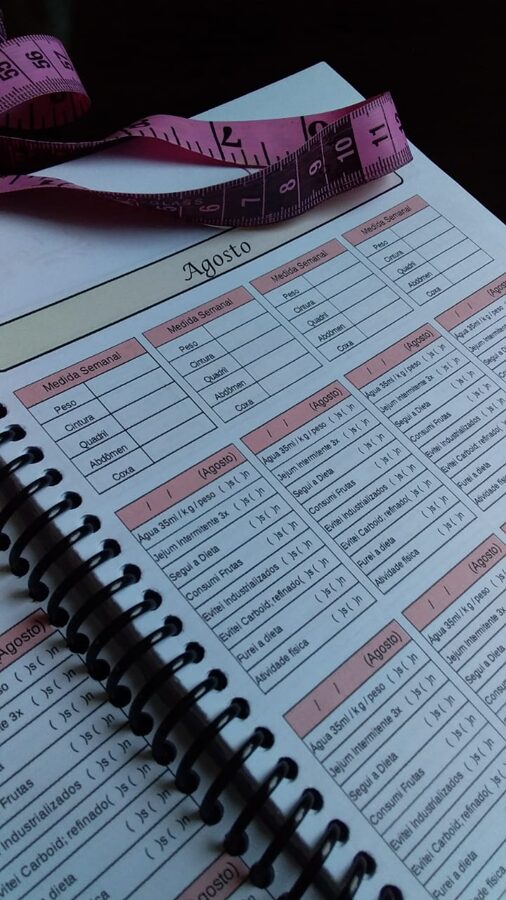 55
56
7
9
11
10
9
8
7
6
Agosto
Medida Semanal
Peso
Cintura
Quadril
Abdômen
Coxa
Medida Semanal
Peso
Cintura
Quadril
Abdômen
Coxa
Medida Semanal
Peso
Cintura
Quadril
Abdômen
Coxa
Medida Semanal
Peso
Cintura
Quadril
Abdômen
Coxa
/ / (Agosto)
Água 35ml / k g / peso ( )s ( )n
Jejum intermitente 3x ( )s ( )n
Segui a Dieta ( )s ( )n
Consumi Frutas ( )s ( )n
Evitei Industrializados ( )s ( )n
Evitei Carboid; refinado( )s ( )n
Furei a dieta ( )s ( )n
Atividade física ( )s ( )n
/ / (Agosto)
Água 35ml / k g / peso ( )s ( )n
Jejum intermitente 3x ( )s ( )n
Segui a Dieta ( )s ( )n
Consumi Frutas ( )s ( )n
Evitei Industrializados ( )s ( )n
Evitei Carboid; refinado( )s ( )n
Furei a dieta ( )s ( )n
Atividade física ( )s ( )n
/ / (Agosto)
Água 35ml / k g / peso ( )s ( )n
Jejum intermitente 3x ( )s ( )n
Segui a Dieta ( )s ( )n
Consumi Frutas ( )s ( )n
Evitei Industrializados ( )s ( )n
Evitei Carboid; refinado( )s ( )n
Furei a dieta ( )s ( )n
Atividade física ( )s ( )n
/ / (Agosto)
Água 35ml / k g / peso
Jejum intermitente 3x
Segui a Dieta
Consumi Frutas
Evitei Industrializados
Evitei Carboid; refinado
Furei a dieta
Atividade física
/ / (Agosto)
Água 35ml / k g / peso ( )s ( )n
Jejum intermitente 3x ( )s ( )n
Segui a Dieta ( )s ( )n
Consumi Frutas ( )s ( )n
Evitei Industrializados ( )s ( )n
Evitei Carboid; refinado( )s ( )n
Furei a dieta ( )s ( )n
/ / (Agosto)
Água 35ml / k g / peso ( )s
Jejum intermitente 3x
Segui a Dieta
Consumi Frutas
(Agosto)
( )s ( )n
3x ( )s ( )n
( )s ( )n
Frutas ( )s ( )n
Industrializados ( )s ( )n
Carboid; refinado( )s ( )n
dieta ( )s ( )n
física ( )s ( )n
(Agosto)